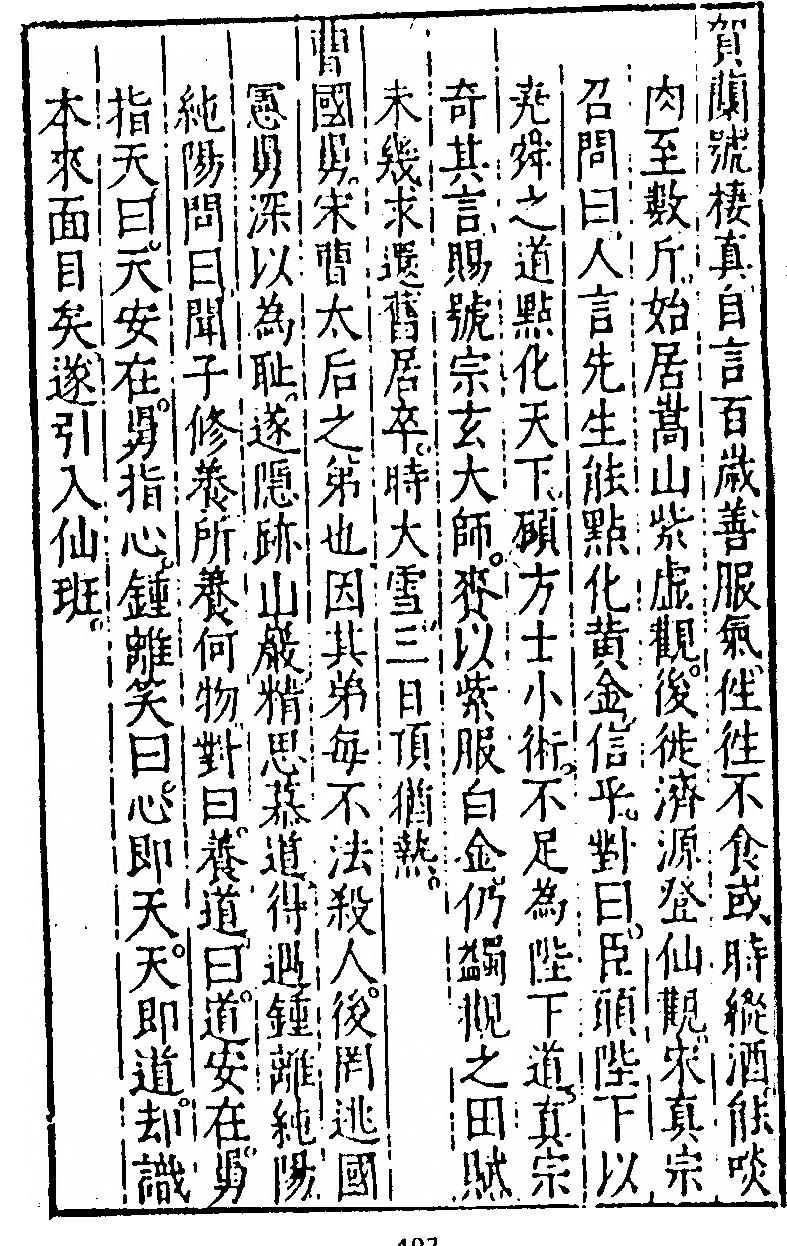 賀蘭號棲真自言百歲善服氣徃徃不食或時縱酒能啖
肉至數斤始居嵩山紫虛觀後徙濟源登仙觀宋真宗
召問曰人言先生能點化黃金信乎對曰臣願陛下以
堯舜之道點化天下願方士小術不足為陛下道真宗
奇其言賜號宗玄大師賚以紫服白金仍蠲觀之田賦
未幾求還舊居卒時大雪三日頂猶熱
曹國舅宋曹太后之弟也因其弟每不法殺人後罔逃國
憲舅深以為恥遂隱跡山巖精思慕道得遇鍾離純陽
純陽問曰聞子修養所養何物對曰養道曰道安在舅
指天曰天安在舅指心鍾離笑曰心即天天即道却識
本來面目矣遂引入仙班